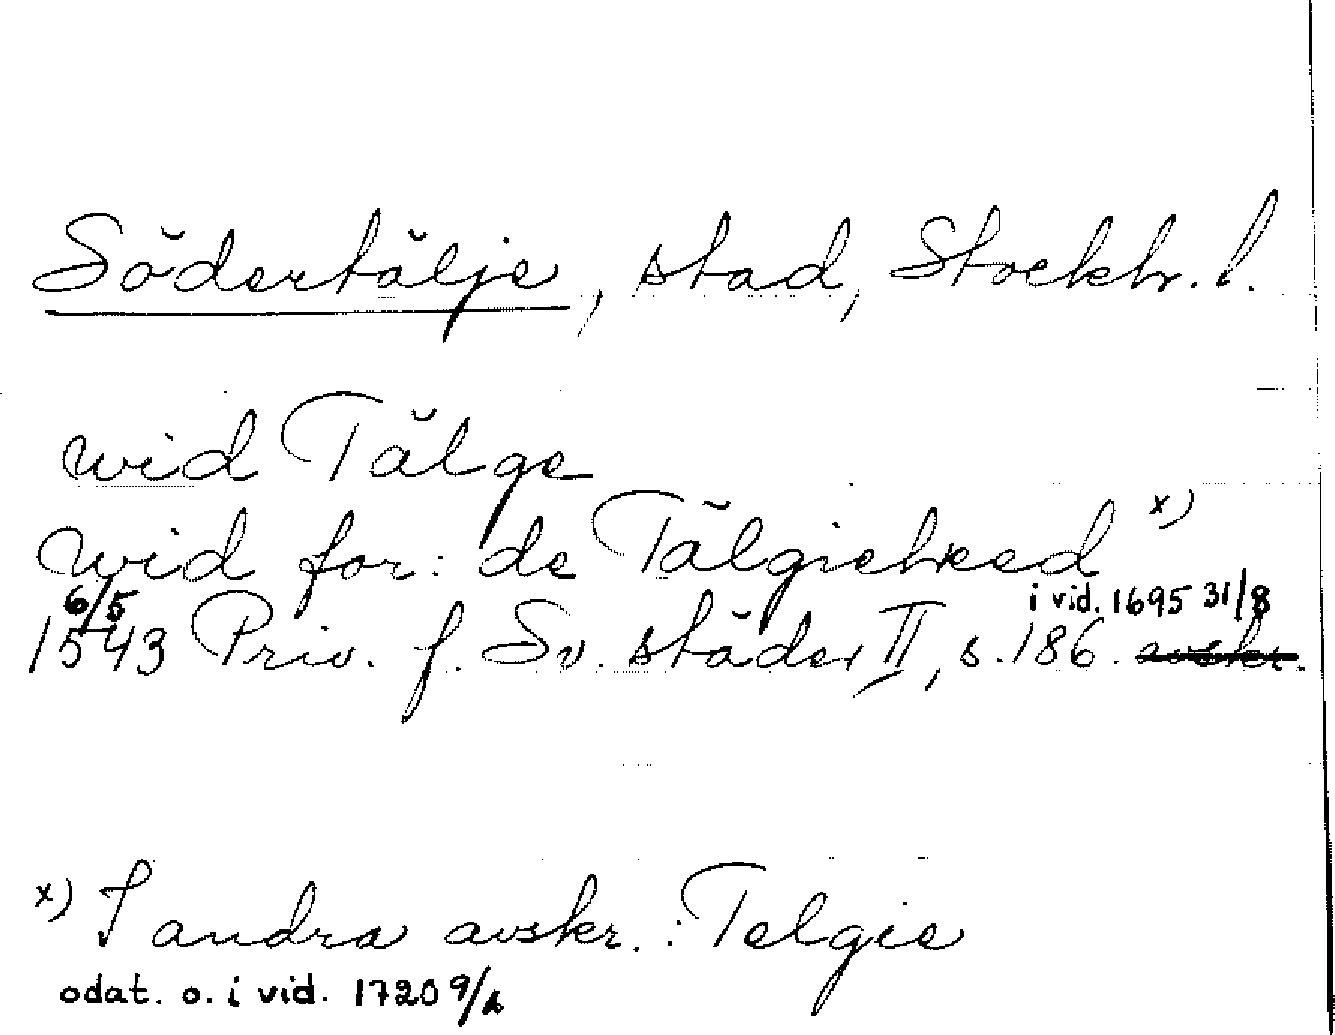 Södertälje, stad, Stockh. l.
wid Tälge
wid for: de Tälgieheed x)
6/5 i vid. 1695 31/8
1543 Priv. f. Sv. städer II, s. 186. avskr.
x) I andra avskr.: Telgie
odat. o. i vid. 1720 9/2